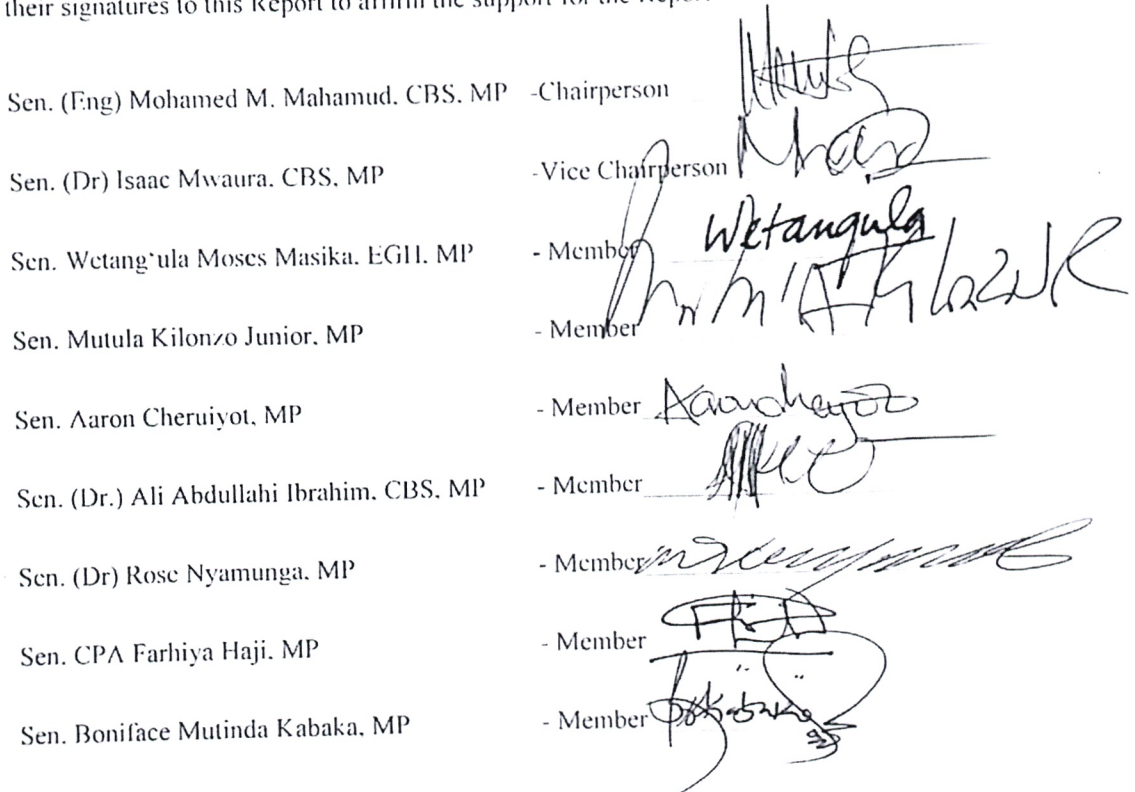 their signatures to this Report to affirm the support for the Report
Sen. (Eng) Mohamed M. Mahamud. CBS. MP -Chairperson
Sen. (Dr) Isaac Mwaura. CBS, MP -Vice Chairperson
Sen. Wetang'ula Moses Masika. EGH. MP - Member Wetangula
Sen. Mutula Kilonzo Junior, MP - Member
Sen. Aaron Cheruiyot, MP - Member
Sen. (Dr.) Ali Abdullahi Ibrahim. CBS, MP - Member
Sen. (Dr) Rose Nyamunga. MP - Member
Sen. CPA Farhiya Haji. MP - Member
Sen. Boniface Mutinda Kabaka, MP - Member